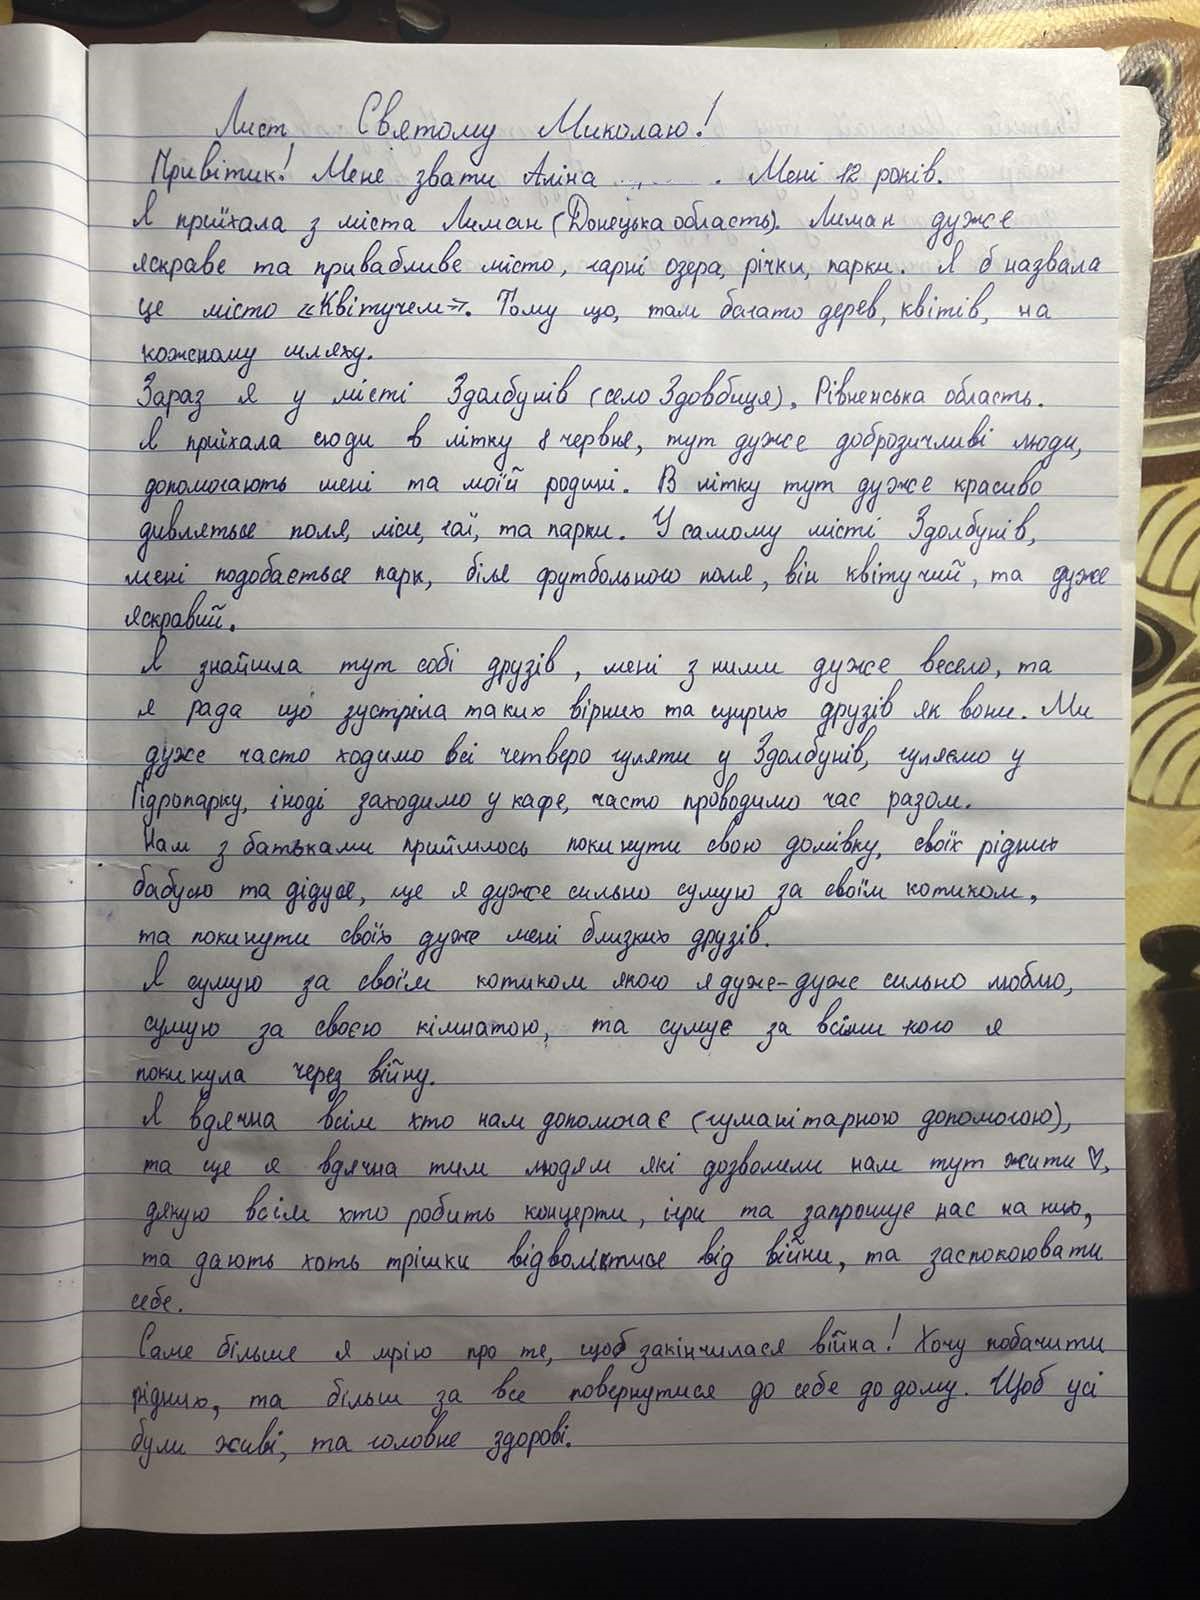 Лист Святому Миколаю!
Привітик! Мене звати Аліна . Мені 12 років.
Я приїхала з міста Лиман (Донецька область). Лиман дуже
яскраве та привабливе місто, гарні озера, річки, парки. Я б назвала
це місто «Квітучем». Тому що, там багато дерев, квітів, на
кожному шляху.
Зараз я у місті Здолбунів (село Здовбиця), Рівненська область.
Я приїхала сюди в літку 8 червня, тут дуже доброзичливі люди,
допомогають мені та моїй родині. В літку тут дуже красиво
дивляться поля, ліси, гаї, та парки. У самому місті Здолбунів,
мені подобається парк, біля футбольного поля, він квітучий, та дуже
яскравий.
Я знайшла тут собі друзів, мені з ними дуже весело, та
я рада що зустріла таких вірних та щирих друзів як вони. Ми
дуже часто ходимо всі четверо гуляти у Здолбунів, гуляємо у
Гідропарку, іноді заходимо у кафе, часто проводимо час разом.
Нам з батьками прийшлось покинути свою домівку, своїх рідних
бабусю та дідуся, ще я дуже сильно сумую за своїм котиком,
та покинути своїх дуже мені близких друзів.
Я сумую за своїм котиком якого я дуже-дуже сильно люблю,
сумую за своєю кімнатою, та сумує за всіми кого я
покинула через війну.
Я вдячна всім хто нам допомагає (гуманітарною допомогою),
та ще я вдячна тим людям які дозволили нам тут жити ♡,
дякую всім хто робить концерти, ігри та запрошує нас на них,
та дають хоть трішки відволіктися від війни, та заспокоювати
себе.
Саме більше я мрію про те, щоб закінчилася війна! Хочу побачити
рідних, та більш за все повернутися до себе до дому. Щоб усі
були живі, та головне здорові.